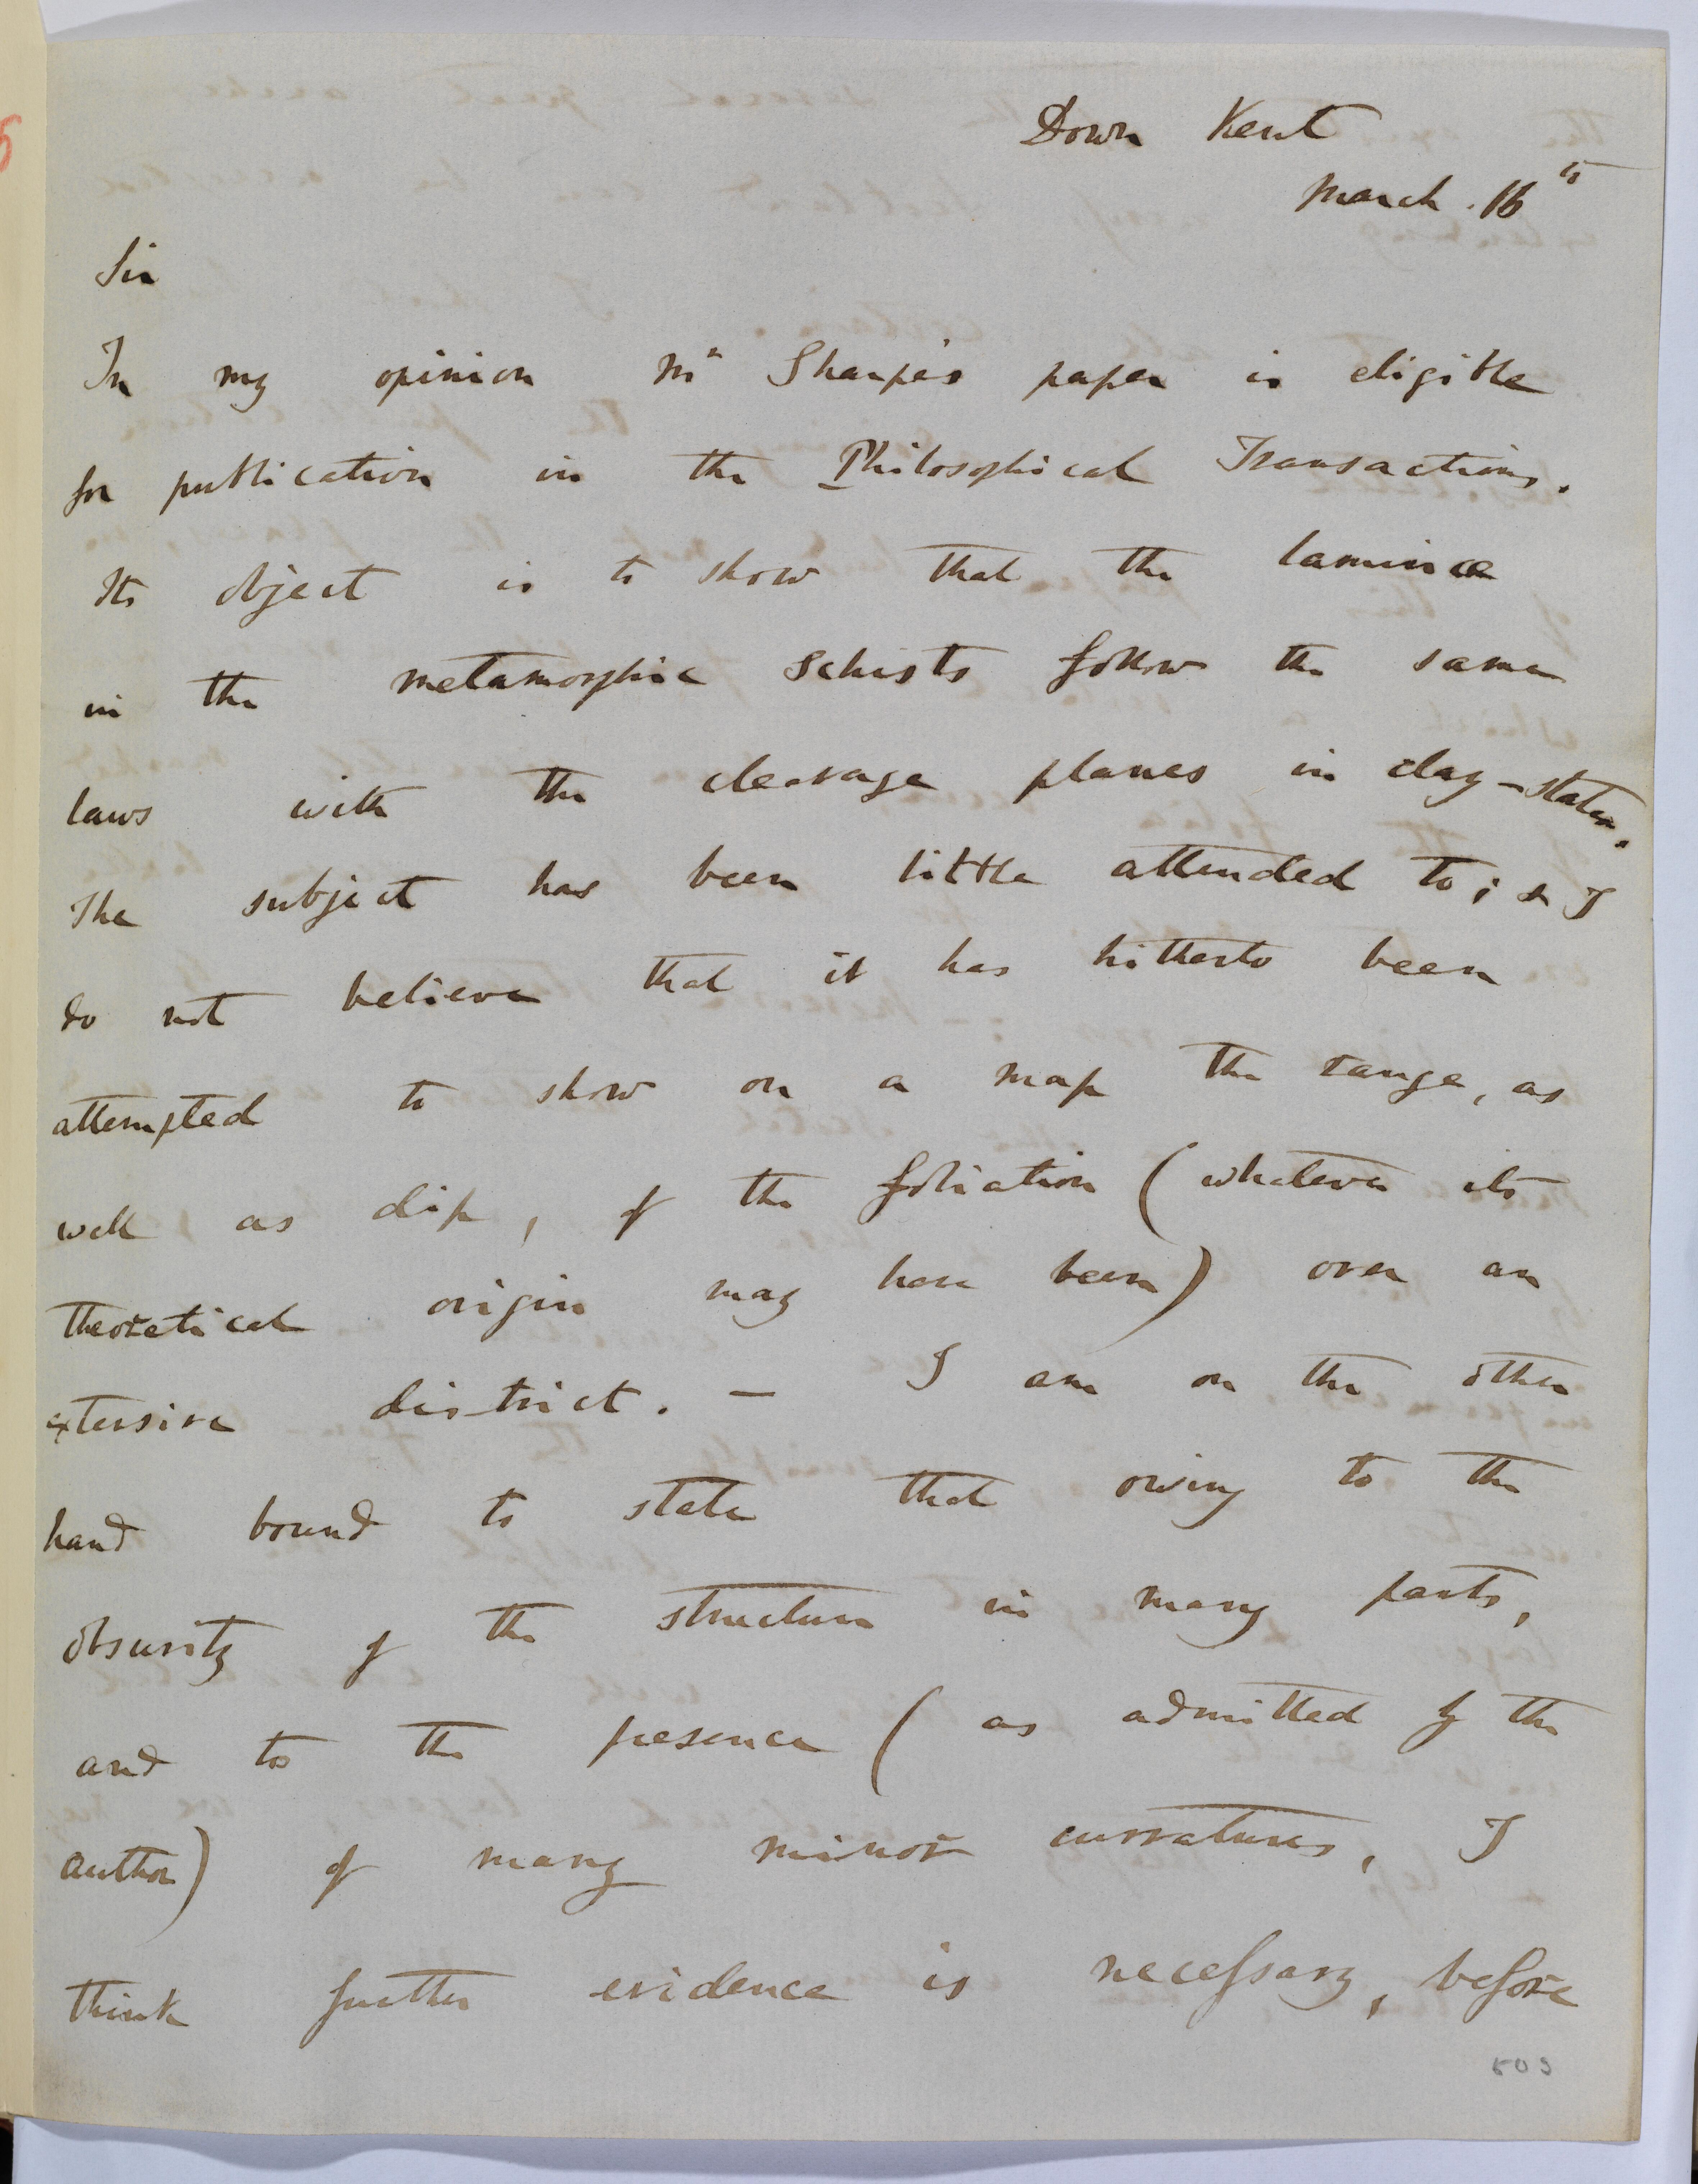 Down Kent
March. 16th
Sir
In my opinion Mr Sharpe's paper is eligible
for publication in the Philosophical Transactions.
Its object is to show that the laminæ
in the metamorphic schists follow the same
laws with the cleavage planes in clay-slates.
The subject has been little attended to; & I
do not believe that it has hitherto been
attempted to show on a map the range, as
well as dip, of the foliation (whatever its
theoretical origin may have been) over an
extensive district. — I am on the other
hand bound to state that owing to the
obscurity of the structure in many parts,
and to the presence (as admitted by the
author) of many minor curvatures, I
think further evidence is necessary, before
503